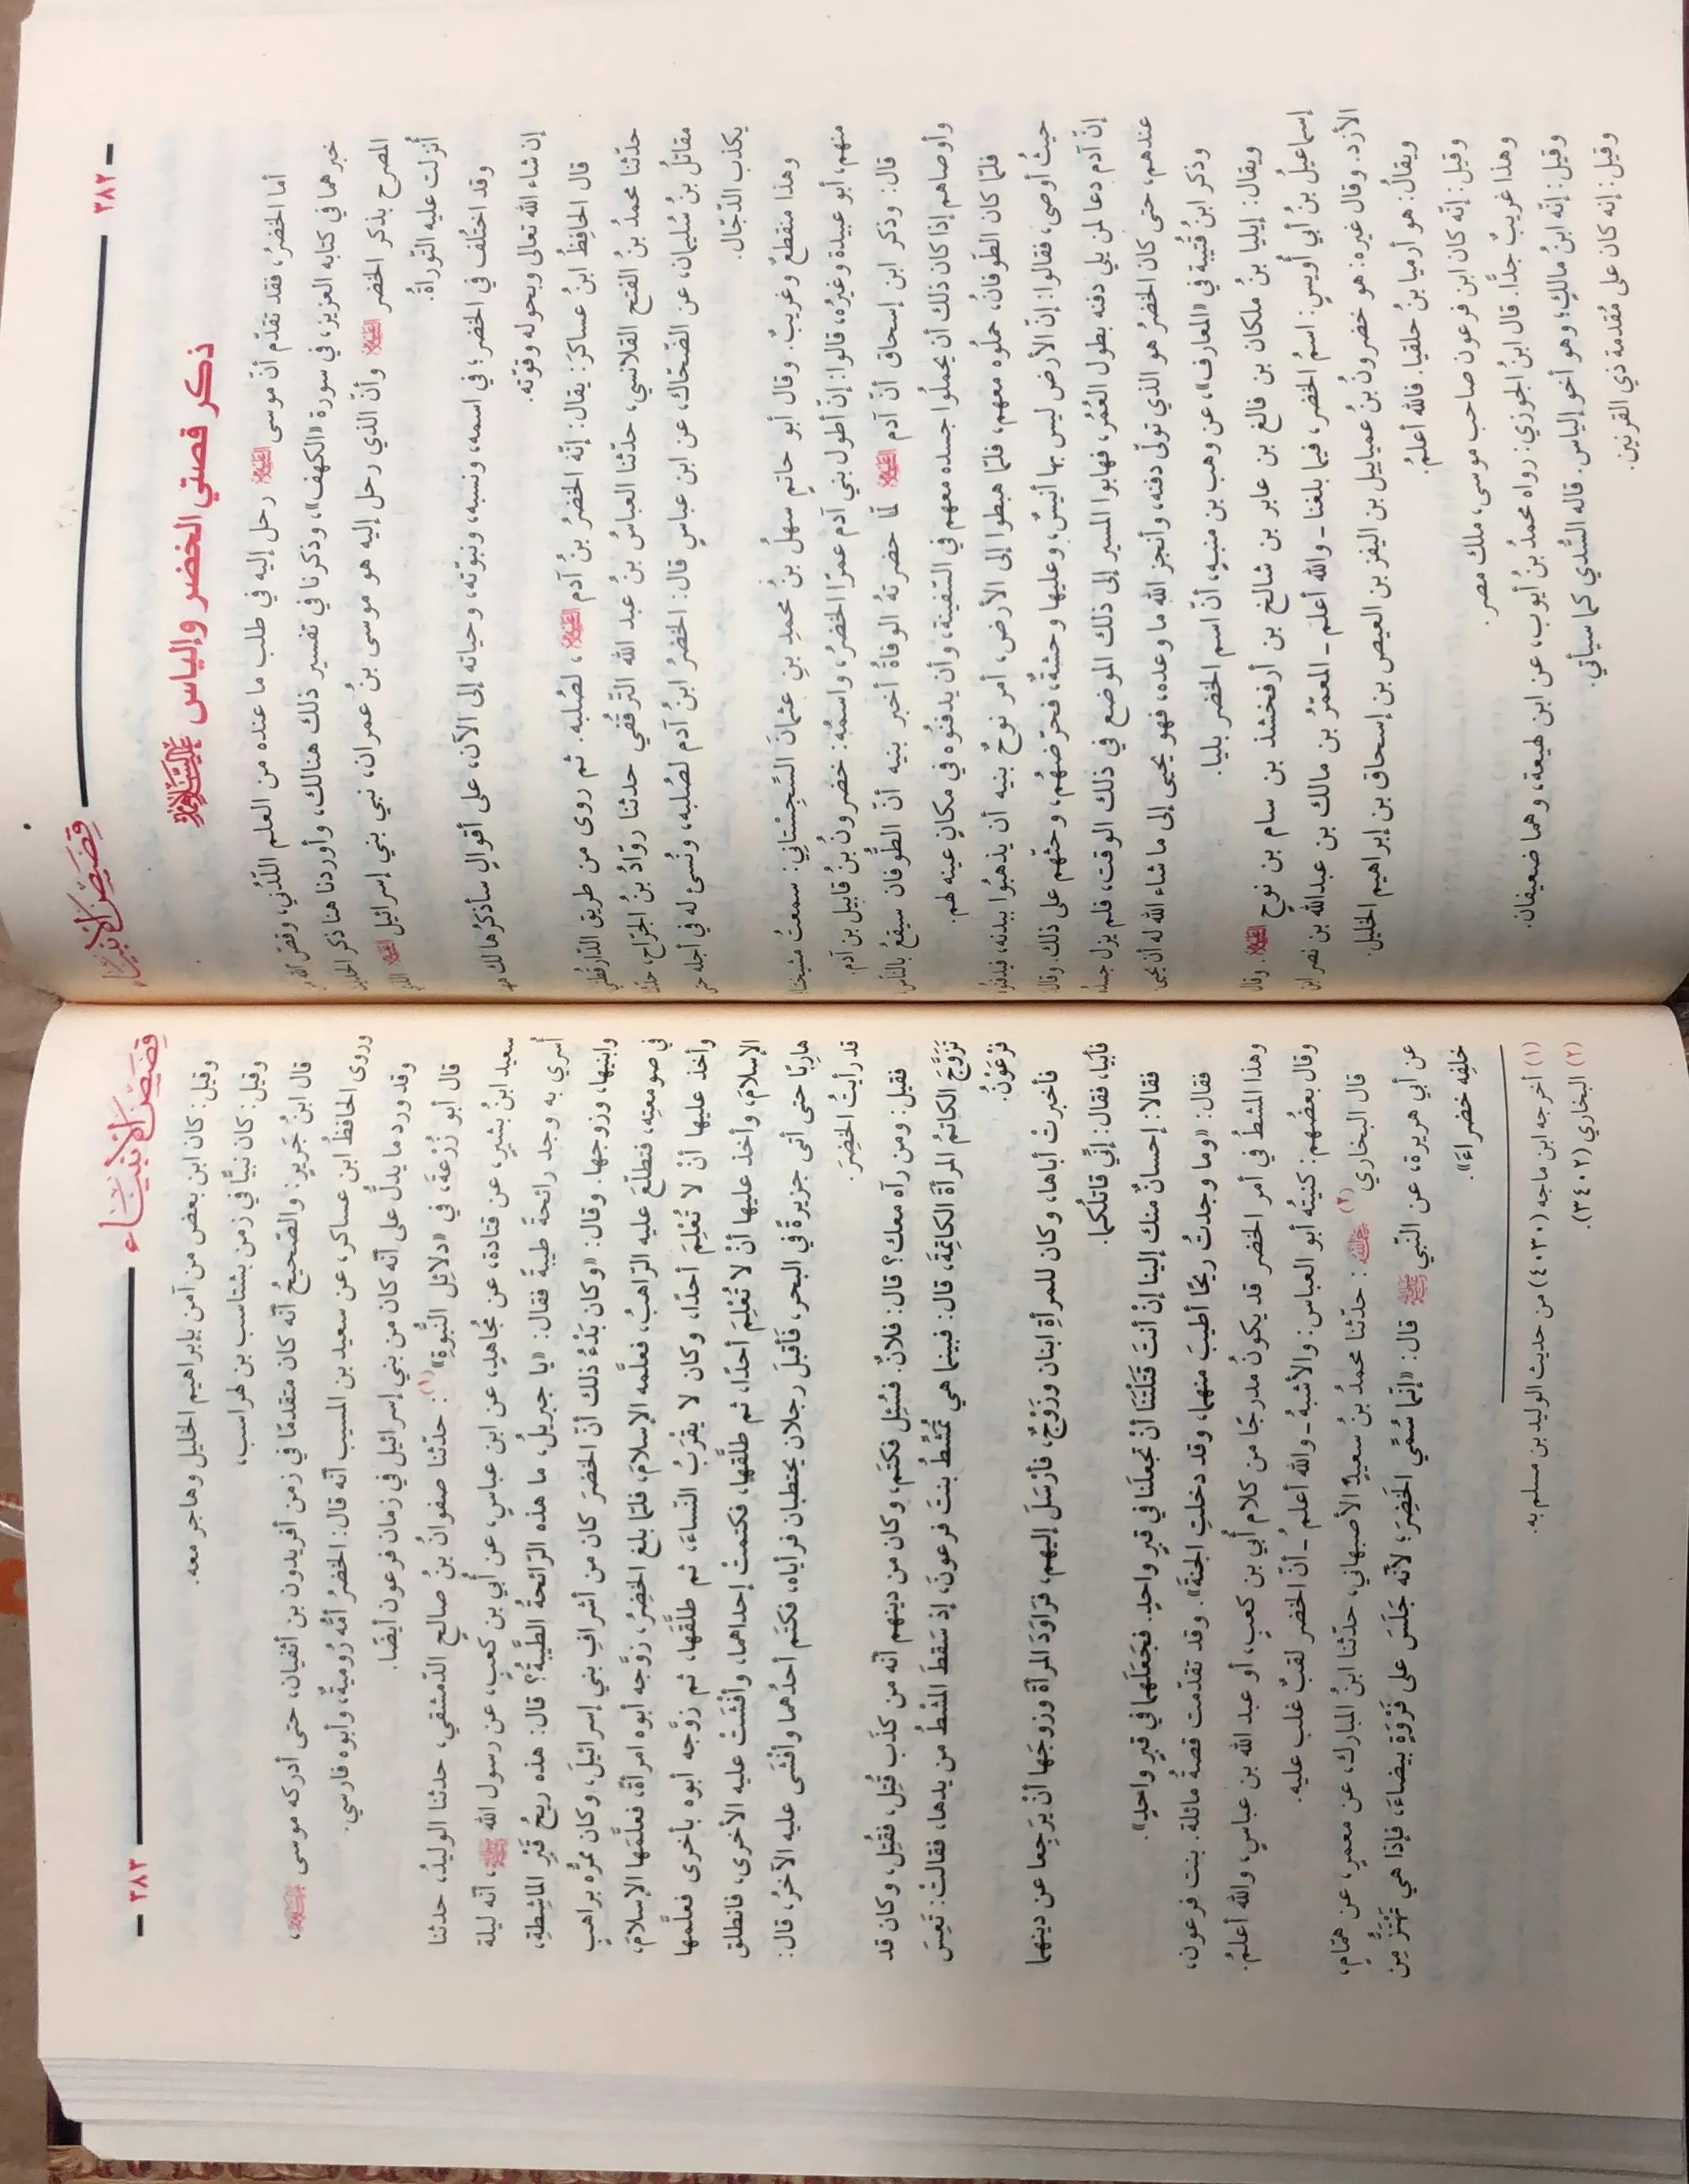 ٣٨٢
قصص الأنبياء
ذكر قصتي الخضر وإلياس عليهما السلام
أما الخضرُ، فقد تقدّم أنّ موسى عليه السلام رحل إليه في طلب ما عنده من العلم اللّدُني، وقصّ الله
خبرهما في كتابه العزيز، في سورة «الكهف»، وذكرنا في تفسير ذلك هنالك، وأوردنا هنا ذكر
المصرح بذكر الخضر عليه السلام وأنّ الذي رحل إليه هو موسى بنُ عمران، نبي بني إسرائيل عليه السلام
أُنزلت عليه التّوراةُ.
وقد اختُلف في الخضر؛ في اسمه، ونسبه، ونبوّته، وحياته إلى الآن، على أقوالٍ سأذكرُها لك
إن شاء الله تعالى وبحوله وقوّته.
قال الحافظُ ابنُ عساكرَ: يقال: إنّه الخضرُ بنُ آدم عليه السلام، لصُلبه. ثم روى من طريق الدّارقطني
حدّثنا محمدُ بنُ الفتح القلانسي، حدّثنا العباسُ بنُ عبد الله التّرقُفي حدثنا روّادُ بنُ الجرّاح،
مقاتلُ بنُ سُليمان، عن الضّحّاك، عن ابن عباسٍ قال: الخضرُ ابنُ آدم لصُلبه، ونُسئ له في أجله
يكذب الدّجّال.
وهذا منقطعٌ وغريبٌ. وقال أبو حاتمٍ سهلُ بنُ محمدِ بنِ عثمانَ السِّجِسْتاني: سمعتُ
منهم، أبو عبيدة وغيرُه، قالوا: إنّ أطول بني آدم عمرًا الخضرُ، واسمُه: خضرونُ بنُ قابيل بن آدم.
قال: وذكر ابن إسحاق أنّ آدم عليه السلام لمّا حضرتهُ الوفاةُ أخبر بنيه أنّ الطُّوفان سيقعُ بالنّاس
وأوصاهم إذا كان ذلك أن يحملُوا جسده معهم في السّفينة، وأن يدفنُوه في مكانٍ عينه لهم.
فلمّا كان الطّوفانُ، حملُوه معهم، فلمّا هبطوا إلى الأرض، أمر نوحٌ بنيه أن يذهبُوا ببدنه، فيدفنُوه
حيثُ أوصى، فقالوا: إنّ الأرض ليس بها أنيسٌ، وعليها وحشةٌ، فحرّضهُم، وحثّهم على ذلك. وقال:
إنّ آدم دعا لمن يلي دفنه بطول العُمُر، فهابوا المسير إلى ذلك الموضع في ذلك الوقت، فلم يزل جسدُه
عندهم، حتى كان الخضرُ هو الذي تولّى دفنه، وأنجز الله ما وعده، فهو يحيى إلى ما شاء الله له أن يحيى
وذكر ابنُ قُتيبة في «المعارف»، عن وهب بن منبهٍ، أنّ اسم الخضر بليا.
ويقال: إيليا بنُ ملكان بن فالغ بن عابر بن شالخ بن أرفخشذ بن سام بن نوحٍ عليه السلام. وقال
إسماعيلُ بنُ أبي أُويسٍ: اسمُ الخضر، فيما بلغنا ـ والله أعلم ـ المعمّرُ بن مالك بن عبدالله بن نصر ابن
الأزد. وقال غيره: هو خضرونُ بنُ عمياييل بن اليفز بن العيص بن إسحاق بن إبراهيم الخليل.
ويقالُ: هو أرميا بنُ حلقيا. فالله أعلمُ.
وقيل: إنّه كان ابن فرعون صاحب موسى، ملك مصر.
وهذا غريبٌ جدًّا. قال ابنُ الجوزي: رواه محمدُ بنُ أيوب، عن ابن لهيعة، وهما ضعيفان.
وقيل: إنّه ابنُ مالكٍ؛ وهو أخو إلياس. قاله السُّدي كما سيأتي.
وقيل: إنه كان على مُقدمة ذي القرنين.
قصص الأنبياء
٣٨٣
وقيل: كان ابن بعض من آمن بإبراهيم الخليل وهاجر معه.
وقيل: كان نبيًّا في زمن بشتاسب بن لهراسب.
قال ابنُ جَريرٍ: والصّحيحُ أنّه كان متقدمًا في زمن أفريدون بن أثفيان، حتى أدركه موسى عليه السلام،
وروى الحافظُ ابن عساكر، عن سعيد بن المسيب أنّه قال: الخضرُ أُمُّه رُوميةٌ، وأبوه فارسي.
وقد ورد ما يدلُّ على أنّه كان من بني إسرائيل في زمان فرعون أيضًا.
قال أبو زُرْعةَ، في «دلائِل النُّبوةِ»(١): حدّثنا صفوانُ بنُ صالحٍ الدّمشقي، حدثنا الوليدُ، حدثنا
سعيد ابنُ بشيرٍ، عن قتادة، عن مجُاهدٍ، عن ابن عباسٍ، عن أُبي بن كعبٍ، عن رسول الله ﷺ، أنّه ليلة
أُسري به وجد رائحةً طيبةً فقال: «يا جبريلُ، ما هذه الرّائحةُ الطّيّبةُ؟ قال: هذه ريحُ قَبْرِ الماشِطةِ،
وابنيها، وزوجها. وقال: «وكان بَدْءُ ذلك أنّ الخضرَ كان من أشرافِ بني إسرائيلَ، وكان ممرُّه براهبٍ
في صومعتِه؛ فتطلّعَ عليه الرّاهبُ، فعلّمه الإسلامَ، فلمّا بلغ الخضِرُ، زوَّجه أبوه امرأةً، فعلَّمَها الإسلامَ،
وأخذ عليها أنْ لا تُعْلِمَ أحدًا، وكان لا يقْرَبُ النّساءَ، ثم طلَّقَها، ثم زوَّجه أبوه بأخرى فعلَّمها
الإسلامَ، وأخذ عليها أنْ لا تُعْلِمَ أحدًا، ثم طلَّقها، فكتمتْ إحداهما، وأفْشَتْ عليه الأخرى، فانطلق
هارِبًا حتى أتى جزيرةً في البحرِ، فأقبلَ رجلان يحتطبان فرأياه، فكتَم أحدُهما وأفْشَى عليه الآخرُ، قال:
قد رأيتُ الخضِرَ.
فقيل: ومن رآه معك؟ قال: فلانٌ. فسُئِل فكتَم، وكان من دينهم أنّه من كذَب قُتِل، فقُتِل، وكان قد
تَزَوَّجَ الكاتمُ المرأةَ الكاتِمةَ، قال: فبينما هي تمُشِّطُ بنتَ فرعونَ، إذ سَقطَ المشْطُ من يدها، فقالتْ: تَعِسَ
فرْعَوْنُ.
فأخبرتْ أباها، وكان للمرأةِ ابنان وزَوْجٌ، فأرْسَلَ إليهم، فرَاوَدَ المرأةَ وزوجَها أنْ يرَجِعا عن دينهما
فأبَيا، فقال: إنّي قاتلُكما.
فقالا: إحسانٌ منك إلينا إنْ أنتَ قَتَلْتَنا أنْ تجعلَنا في قبرٍ واحدٍ. فجَعَلَهما في قبرٍ واحدٍ».
فقال: «وما وجدتُ ريحًا أطيبَ منهما، وقد دخلتِ الجنةَ». وقد تقدّمت قصةُ مائلة. بنت فرعون،
وهذا المشطُ في أمر الخضر قد يكونُ مدرجًا من كلام أُبي بن كعبٍ، أو عبد الله بن عباسٍ، والله أعلمُ.
وقال بعضُهم: كنيتُه أبو العباس: والأشبهُ ـ والله أعلمُ ـ أنّ الخضر لقبٌ غلب عليه.
قال البخاري(٢) رحمه الله: حدّثنا محمدُ بنُ سعيدٍ الأصبهاني، حدّثنا ابنُ المبارك، عن معمرٍ، عن همّامٍ،
عن أبي هريرة، عن النّبي ﷺ قال: «إنّما سُمّي الخَضِرَ؛ لأنّه جَلَسَ على فَرْوَةٍ بيضاءَ، فإذا هي تَهْتَزُّ مِن
خلفِه خضراءَ».
(١) أخرجه ابن ماجه (٤٠٣٠) من حديث الوليد بن مسلم به.
(٢) البخاري (٣٤٠٢).